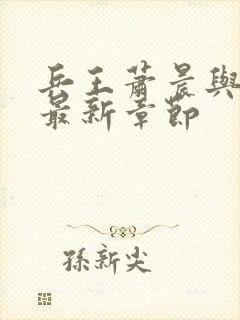 兵王蕭晨與
最新章節
孫新尖